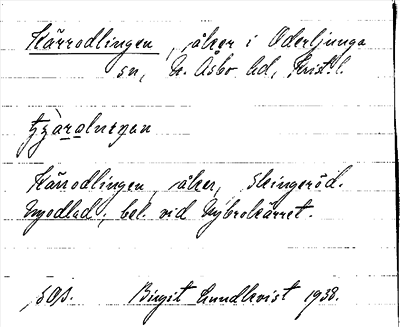 Kärrodlingen, åker i Oderljunga
sn, N. Åsbo hd, Krist. l.
Kärrodlingen, åker, Skingeröd.
Nyodlad; bel. vid Nybrokärret.
SOS. Birgit Lundkvist 1938.